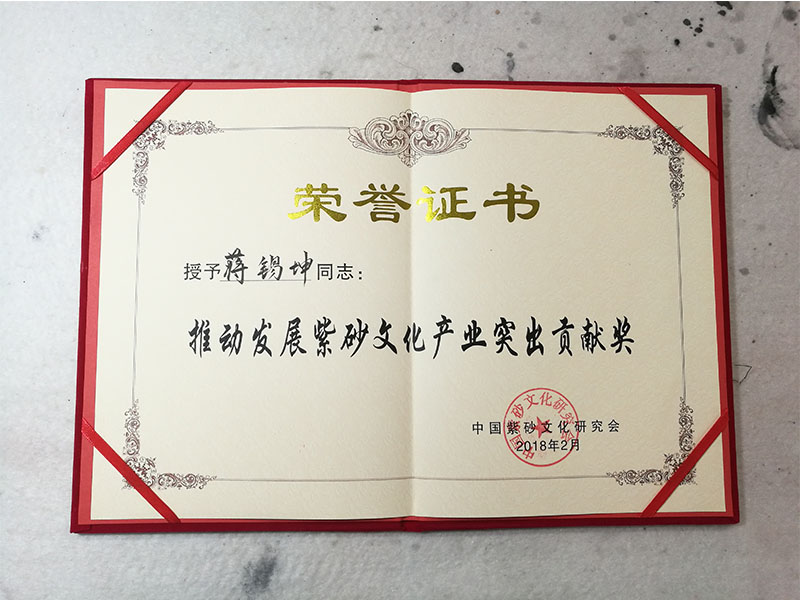 荣誉证书
授予蒋锡坤同志：
推动发展紫砂文化产业突出贡献奖
中国紫砂文化研究会
中国紫砂文化研究会
2018年2月